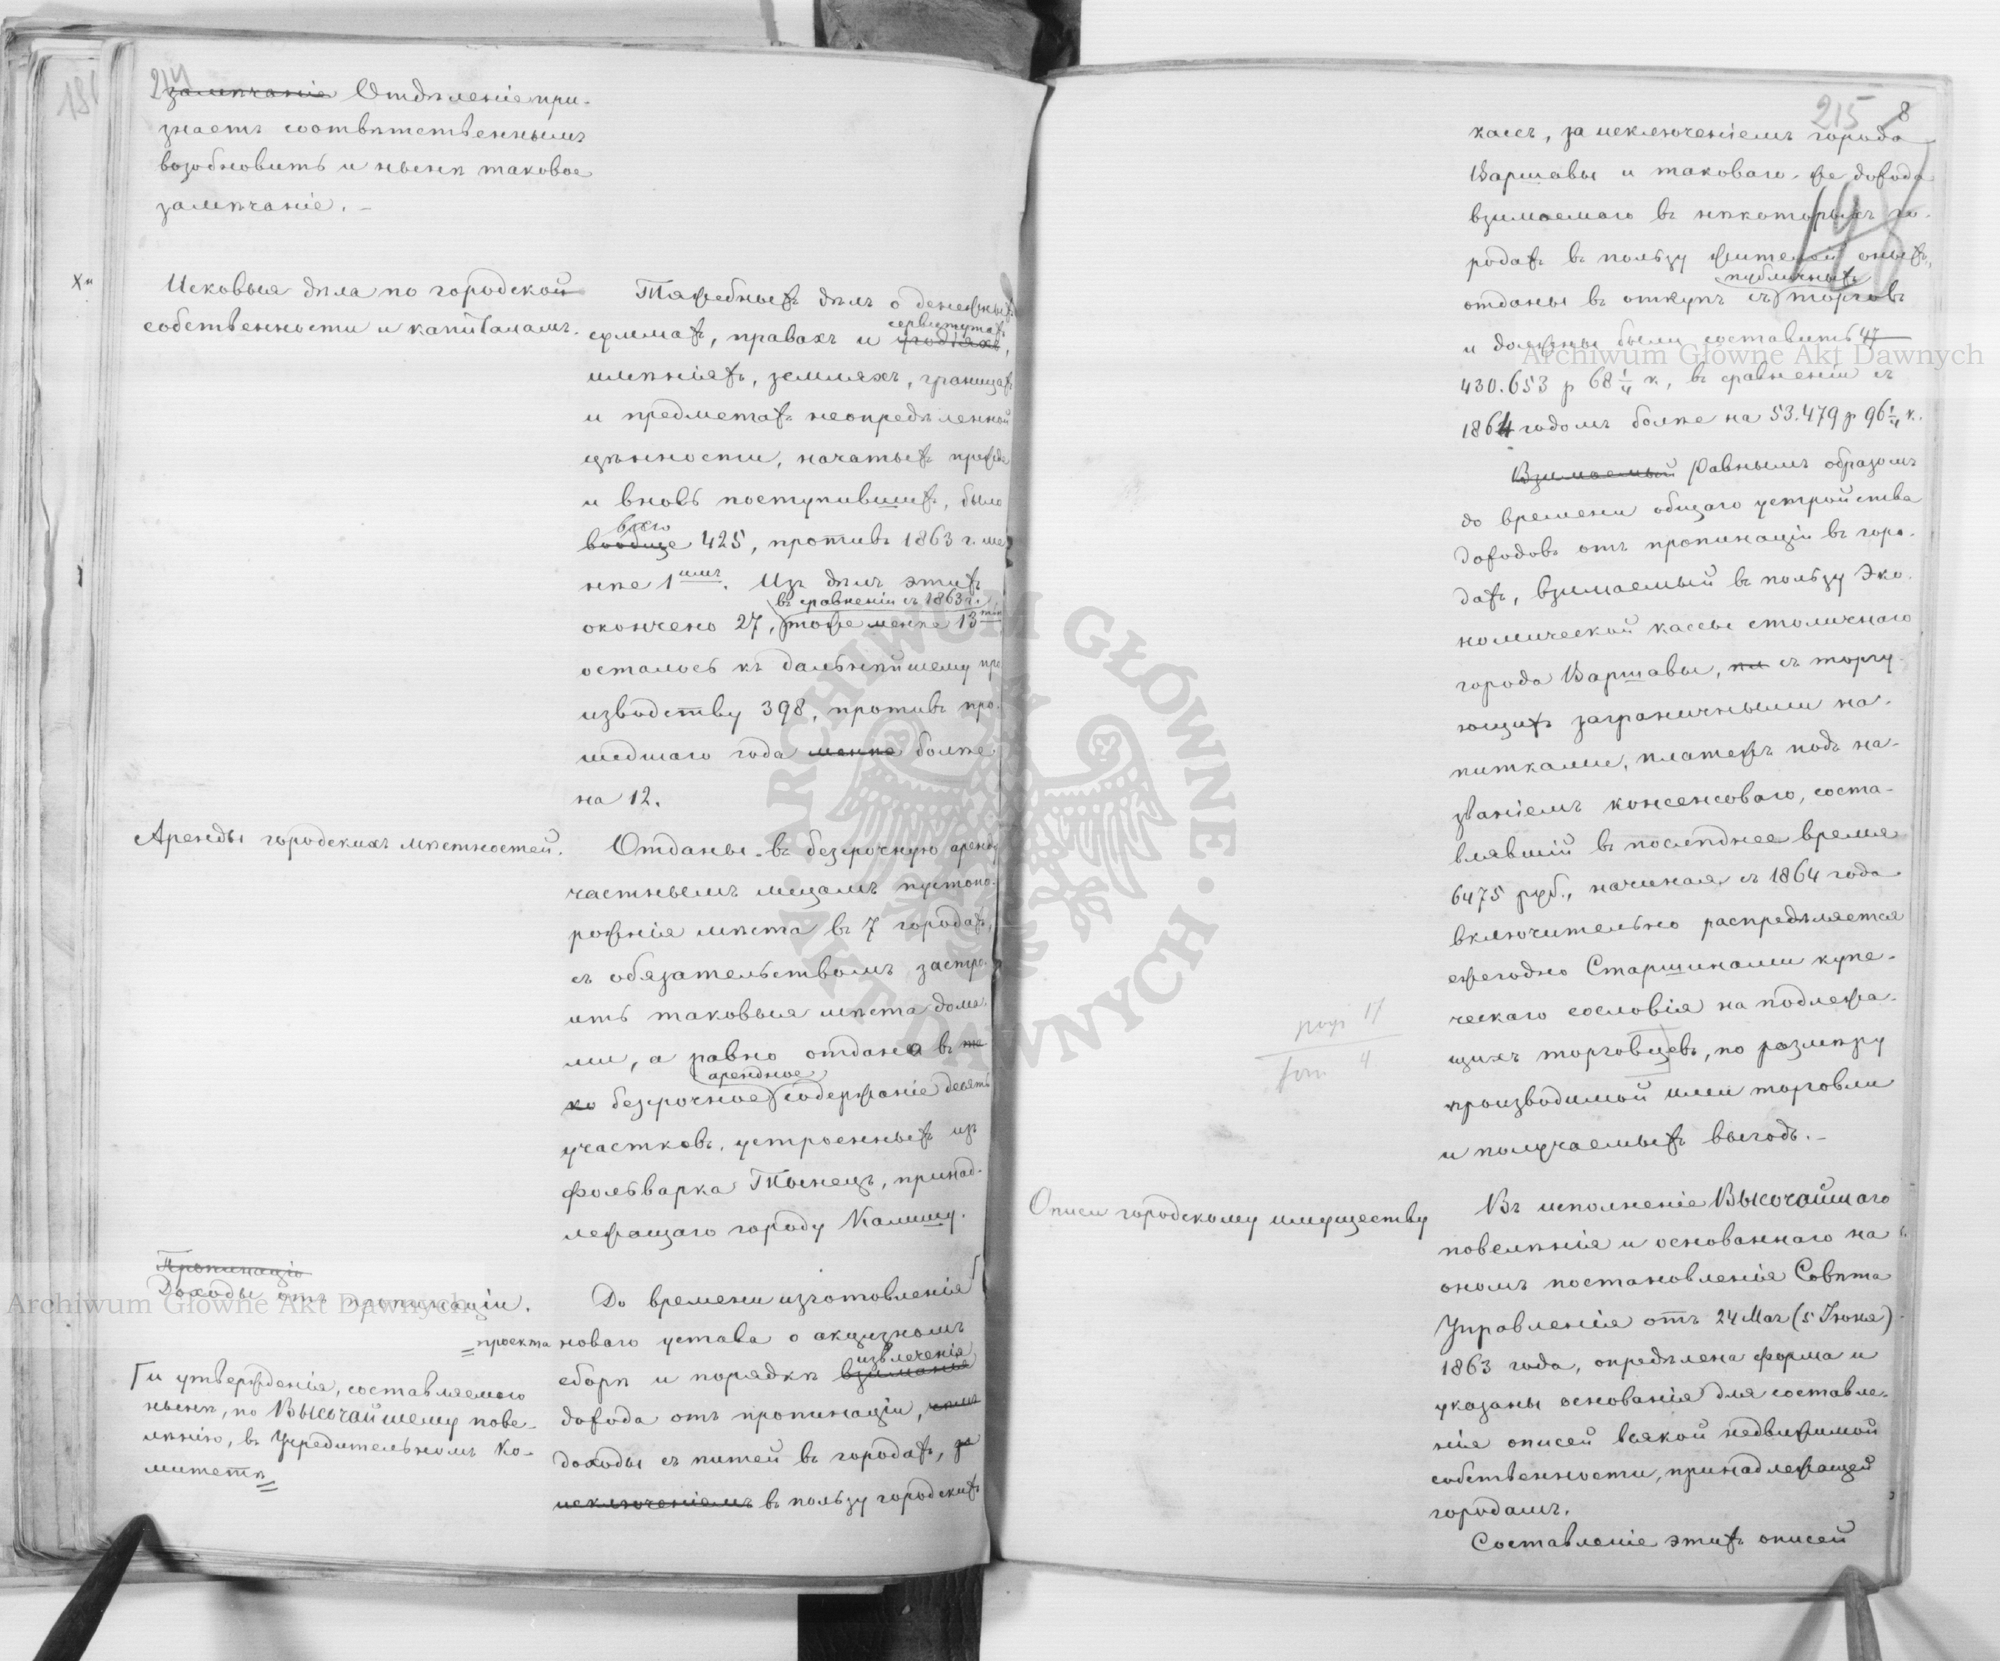 214
181
замѣчаніе Отдѣленіе при-
знаетъ соотвѣтственнымъ
возобновить и нынѣ таковое
замѣчаніе. –
Исковыя дѣла по городской
собственности и капиталамъ.
Тяжебныхъ дѣлъ о денежныхъ
суммахъ, правахъ и угодіяхъ,
сервитутахъ
имѣніяхъ, земляхъ, границахъ
и предметахъ неопредѣленной
цѣнности, начатыхъ прежде
и вновь поступившихъ, было
всего
вообще 425, противъ 1863 г. ме-
нѣе 1имъ. Изъ дѣлъ этихъ
въ сравненіи съ 1863 г.
окончено 27, тоже менѣе 13тью
осталось къ дальнѣйшему про-
изводству 398, противъ про-
шедшаго года менѣе болѣе
на 12.
Аренды городскихъ мѣстностей.
Отданы въ безсрочную аренду
частнымъ лицамъ пустопо-
рожнія мѣста въ 7 городахъ,
съ обязательствомъ застро-
ить таковыя мѣста дома-
ми, а равно отдано въ то
арендное
ко безсрочное содержаніе девять
участковъ, устроенныхъ изъ
фольварка Тынецъ, принад-
лежащаго городу Калишу.
Пропинаціо
Доходы отъ пропинаціи.
До времени изготовленія
проекта новаго устава о акцизномъ
извлеченія
сборѣ и порядкѣ взиманія
дохода отъ пропинаціи,
доходы съ питей въ городахъ, за
исключеніемъ въ пользу городскихъ
и утвержденія, составляемаго
нынѣ, по Высочайшему пове-
лѣнію, въ Учредительномъ Ко-
митетѣ
215
8
кассъ, за исключеніемъ города
Варшавы и таковаго-же дохода
взимаемаго въ нѣкоторыхъ го-
родахъ въ пользу жителей оныхъ,
публичныхъ
отданы въ откупъ съ торговъ
и должны были составить
430.653 р 68 1/4 к, въ сравненіи съ
1864 годомъ болѣе на 53.479 р 96 1/4 к.
Взимаемый Равнымъ образомъ
до времени общаго устройства
доходовъ отъ пропинаціи въ горо-
дахъ, взимаемый въ пользу Эко-
номической кассы столичнаго
города Варшавы, съ торгу-
ющихъ заграничными на-
питками, платежъ подъ на-
званіемъ консенсоваго, соста-
влявшій въ послѣднее время
6475 руб., начиная съ 1864 года
включительно распредѣляется
ежегодно Старшинами купе-
ческаго сословія на подлежа-
щихъ торговцевъ, по размѣру
производимой ими торговли
и получаемыхъ выгодъ. –
Описи городскому имуществу
Въ исполненіе Высочайшаго
повелѣнія и основаннаго на
ономъ постановленія Совѣта
Управленія отъ 24 Мая (5 Іюня)
1863 года, опредѣлена форма и
указаны основанія для составле-
нія описей всякой недвижимой
собственности, принадлежащей
городамъ.
Составленіе этихъ описей
Archiwum Główne Akt Dawnych
Archiwum Główne Akt Dawnych
ARCHIWUM GŁÓWNE AKT DAWNYCH